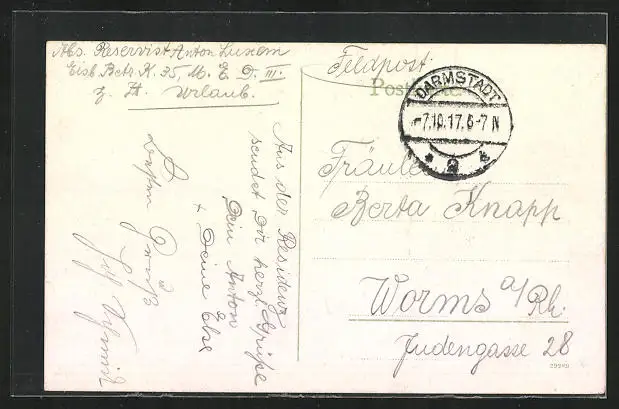 Abs. Reservist Anton Luxem
Eisb. Betr. K. 35, M. E. D. III.
z. Zt. Urlaub.
Feldpost.
Postkarte
DARMSTADT
-7.10.17.6-7 N
* 2 *
Fräulein
Berta Knapp
Worms a/Rh.
Judengasse 28
Aus der Residenz
sendet Dir herzl. Grüße
Dein Anton
+ Deine Else
Besten Gruß
29921